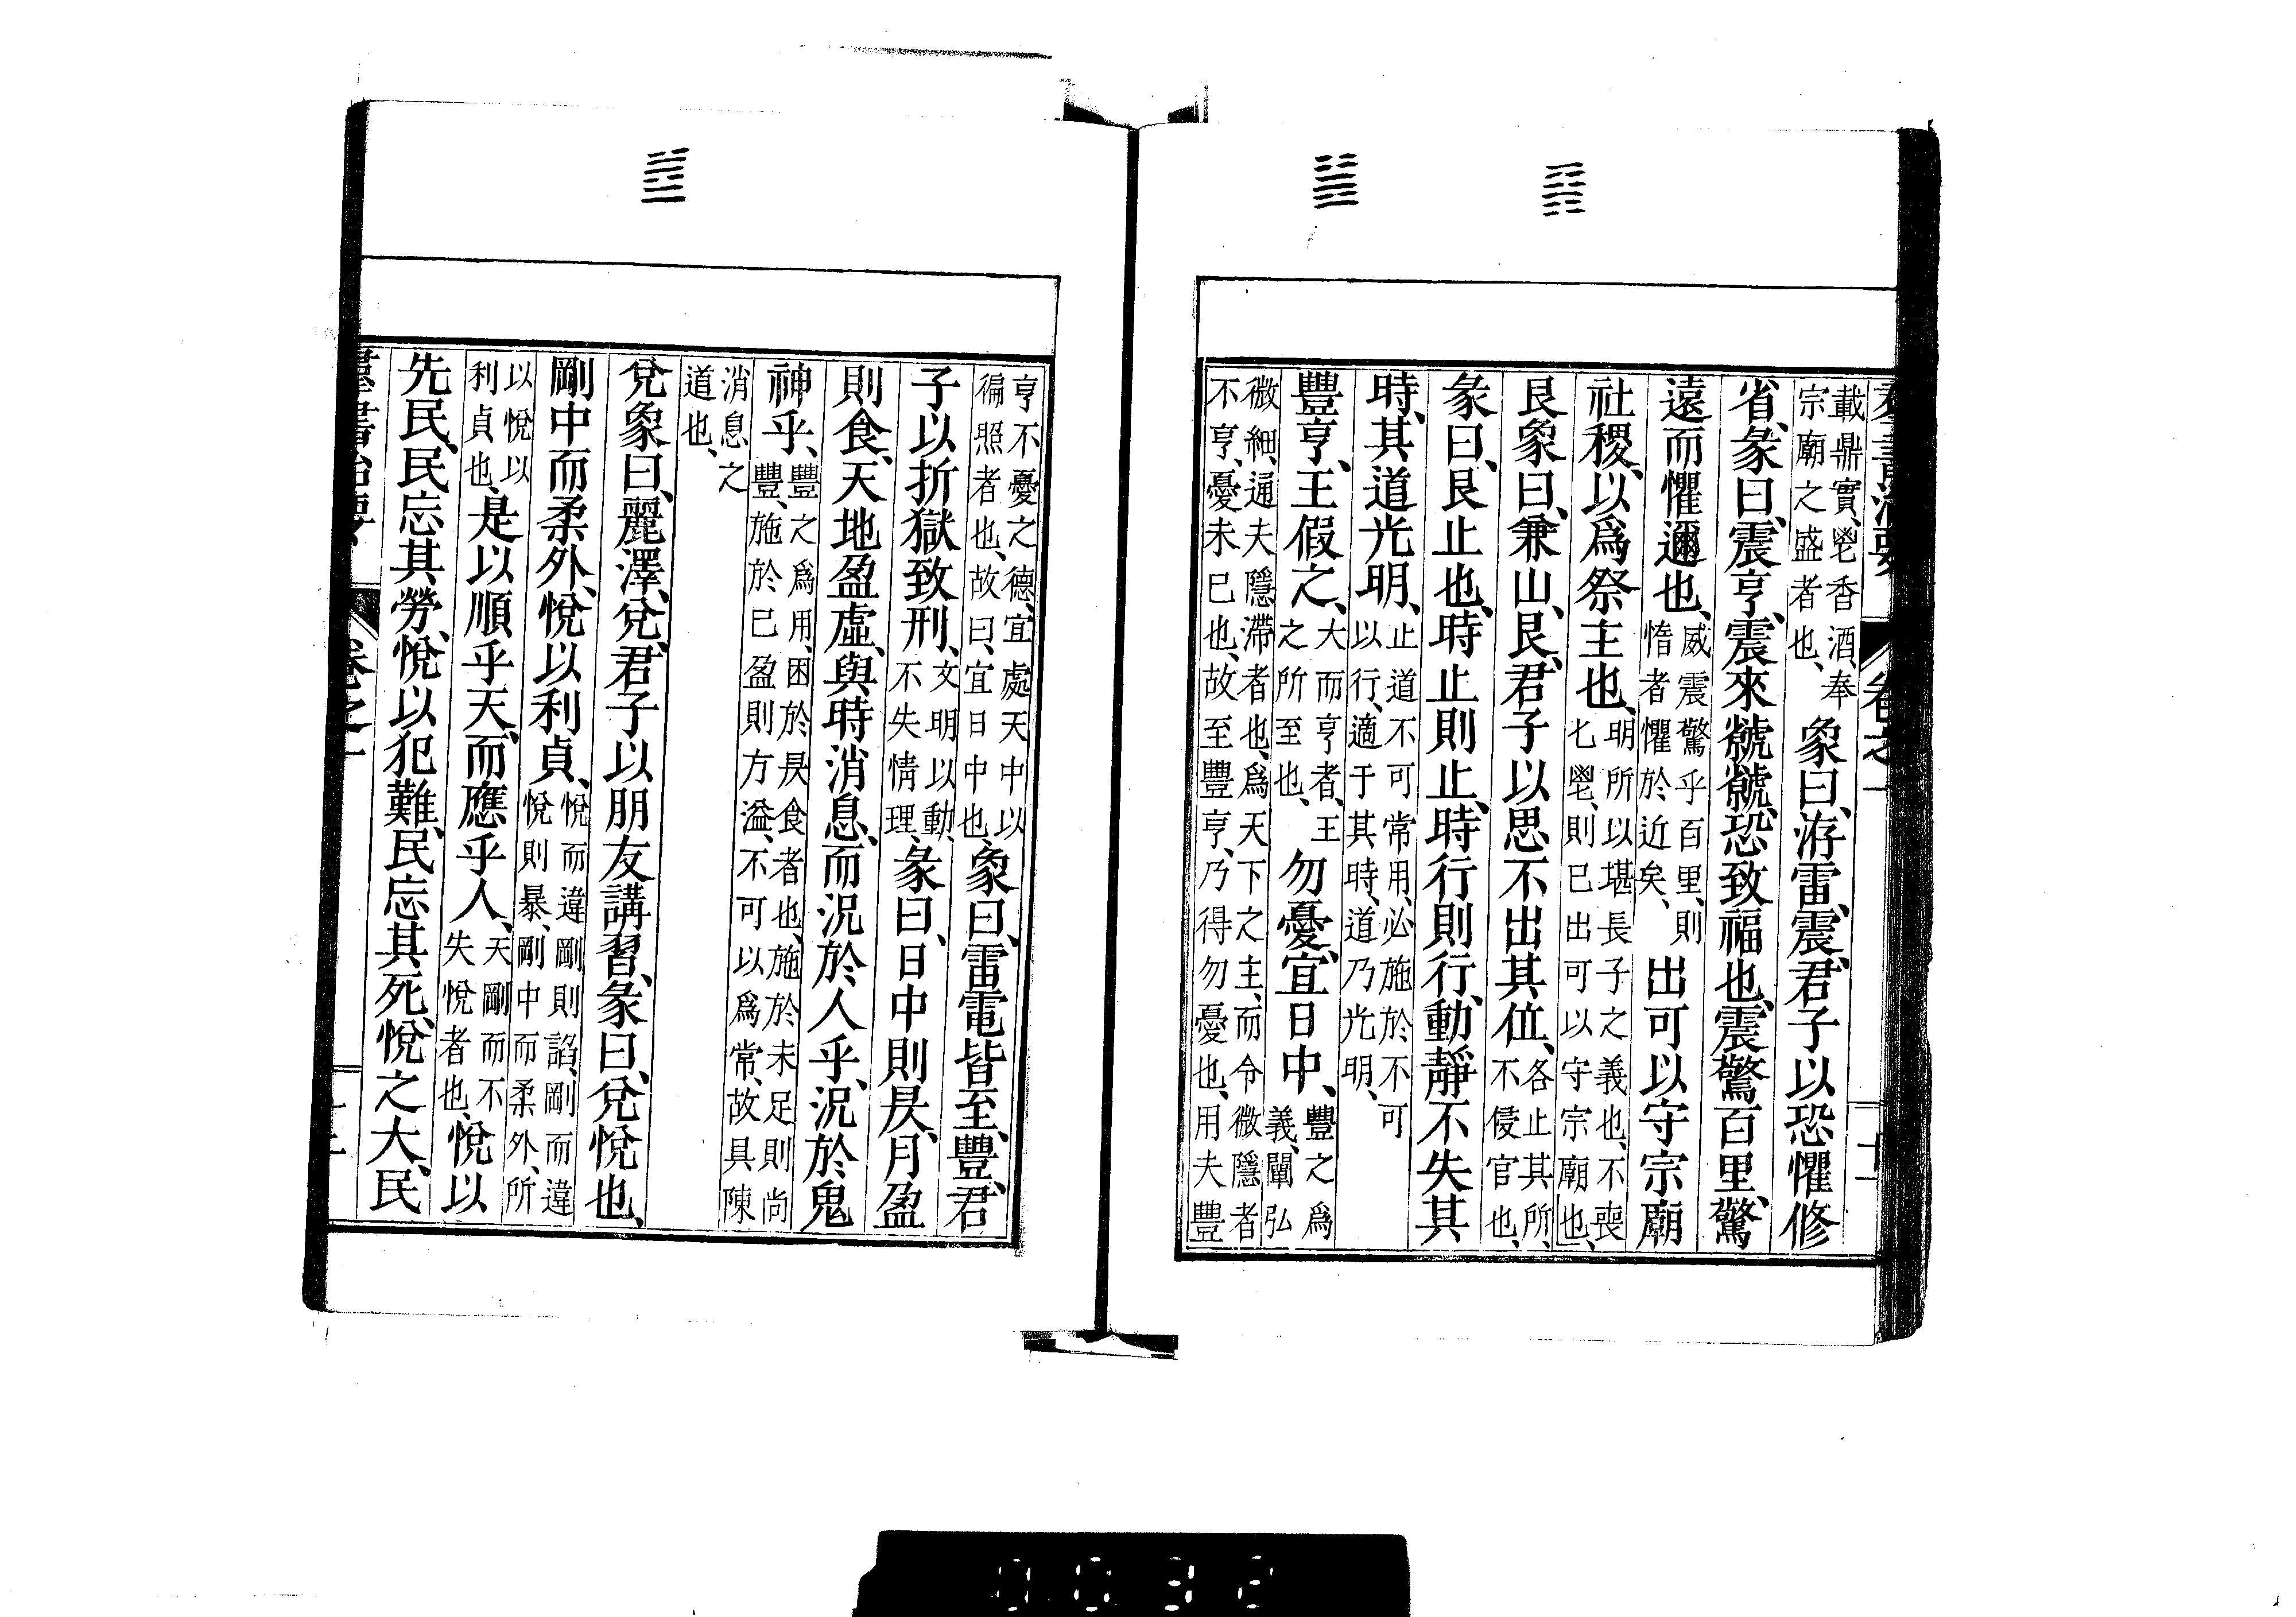 群書治要 卷之一
載鼎實、鬯香酒、奉
宗廟之盛者也、
象曰、洊雷、震、君子以恐懼修
省、彖曰、震亨、震來虩虩、恐致福也、震驚百里、驚
遠而懼邇也、
威震驚乎百里、則
惰者懼於近矣、
出可以守宗廟
社稷、以爲祭主也、
明所以堪長子之義也、不喪
匕鬯、則已出可以守宗廟也、
艮象曰、兼山、艮、君子以思不出其位、
各止其所、
不侵官也、
彖曰、艮止也、時止則止、時行則行、動靜不失其
時、其道光明、
止道不可常用、必施於不可
以行、適于其時、道乃光明、
豐亨、王假之、
大而亨者、王
之所至也、
勿憂、宜日中、
豐之爲
義、闡弘
微細、通夫隱滯者也、爲天下之主、而令微隱者
不亨、憂未已也、故至豐亨、乃得勿憂也、用夫豐
亨不憂之德、宜處天中以
徧照者也、故曰、宜日中也、
象曰、雷電皆至、豐、君
子以折獄致刑、
文明以動、
不失情理、
彖曰、日中則昃、月盈
則食、天地盈虛、與時消息、而況於人乎、況於鬼
神乎、
豐之爲用、困於昃食者也、施於未足則尚
豐、施於已盈則方溢、不可以爲常、故具陳
消息之
道也、
兌象曰、麗澤、兌、君子以朋友講習、彖曰、兌悅也、
剛中而柔外、悅以利貞、
悅而違剛則諂、剛而違
悅則暴、剛中而柔外、所
以悅以
利貞也、
是以順乎天、而應乎人、
天剛而不
失悅者也、
悅以
先民、民忘其勞、悅以犯難、民忘其死、悅之大、民
群書治要 卷之一